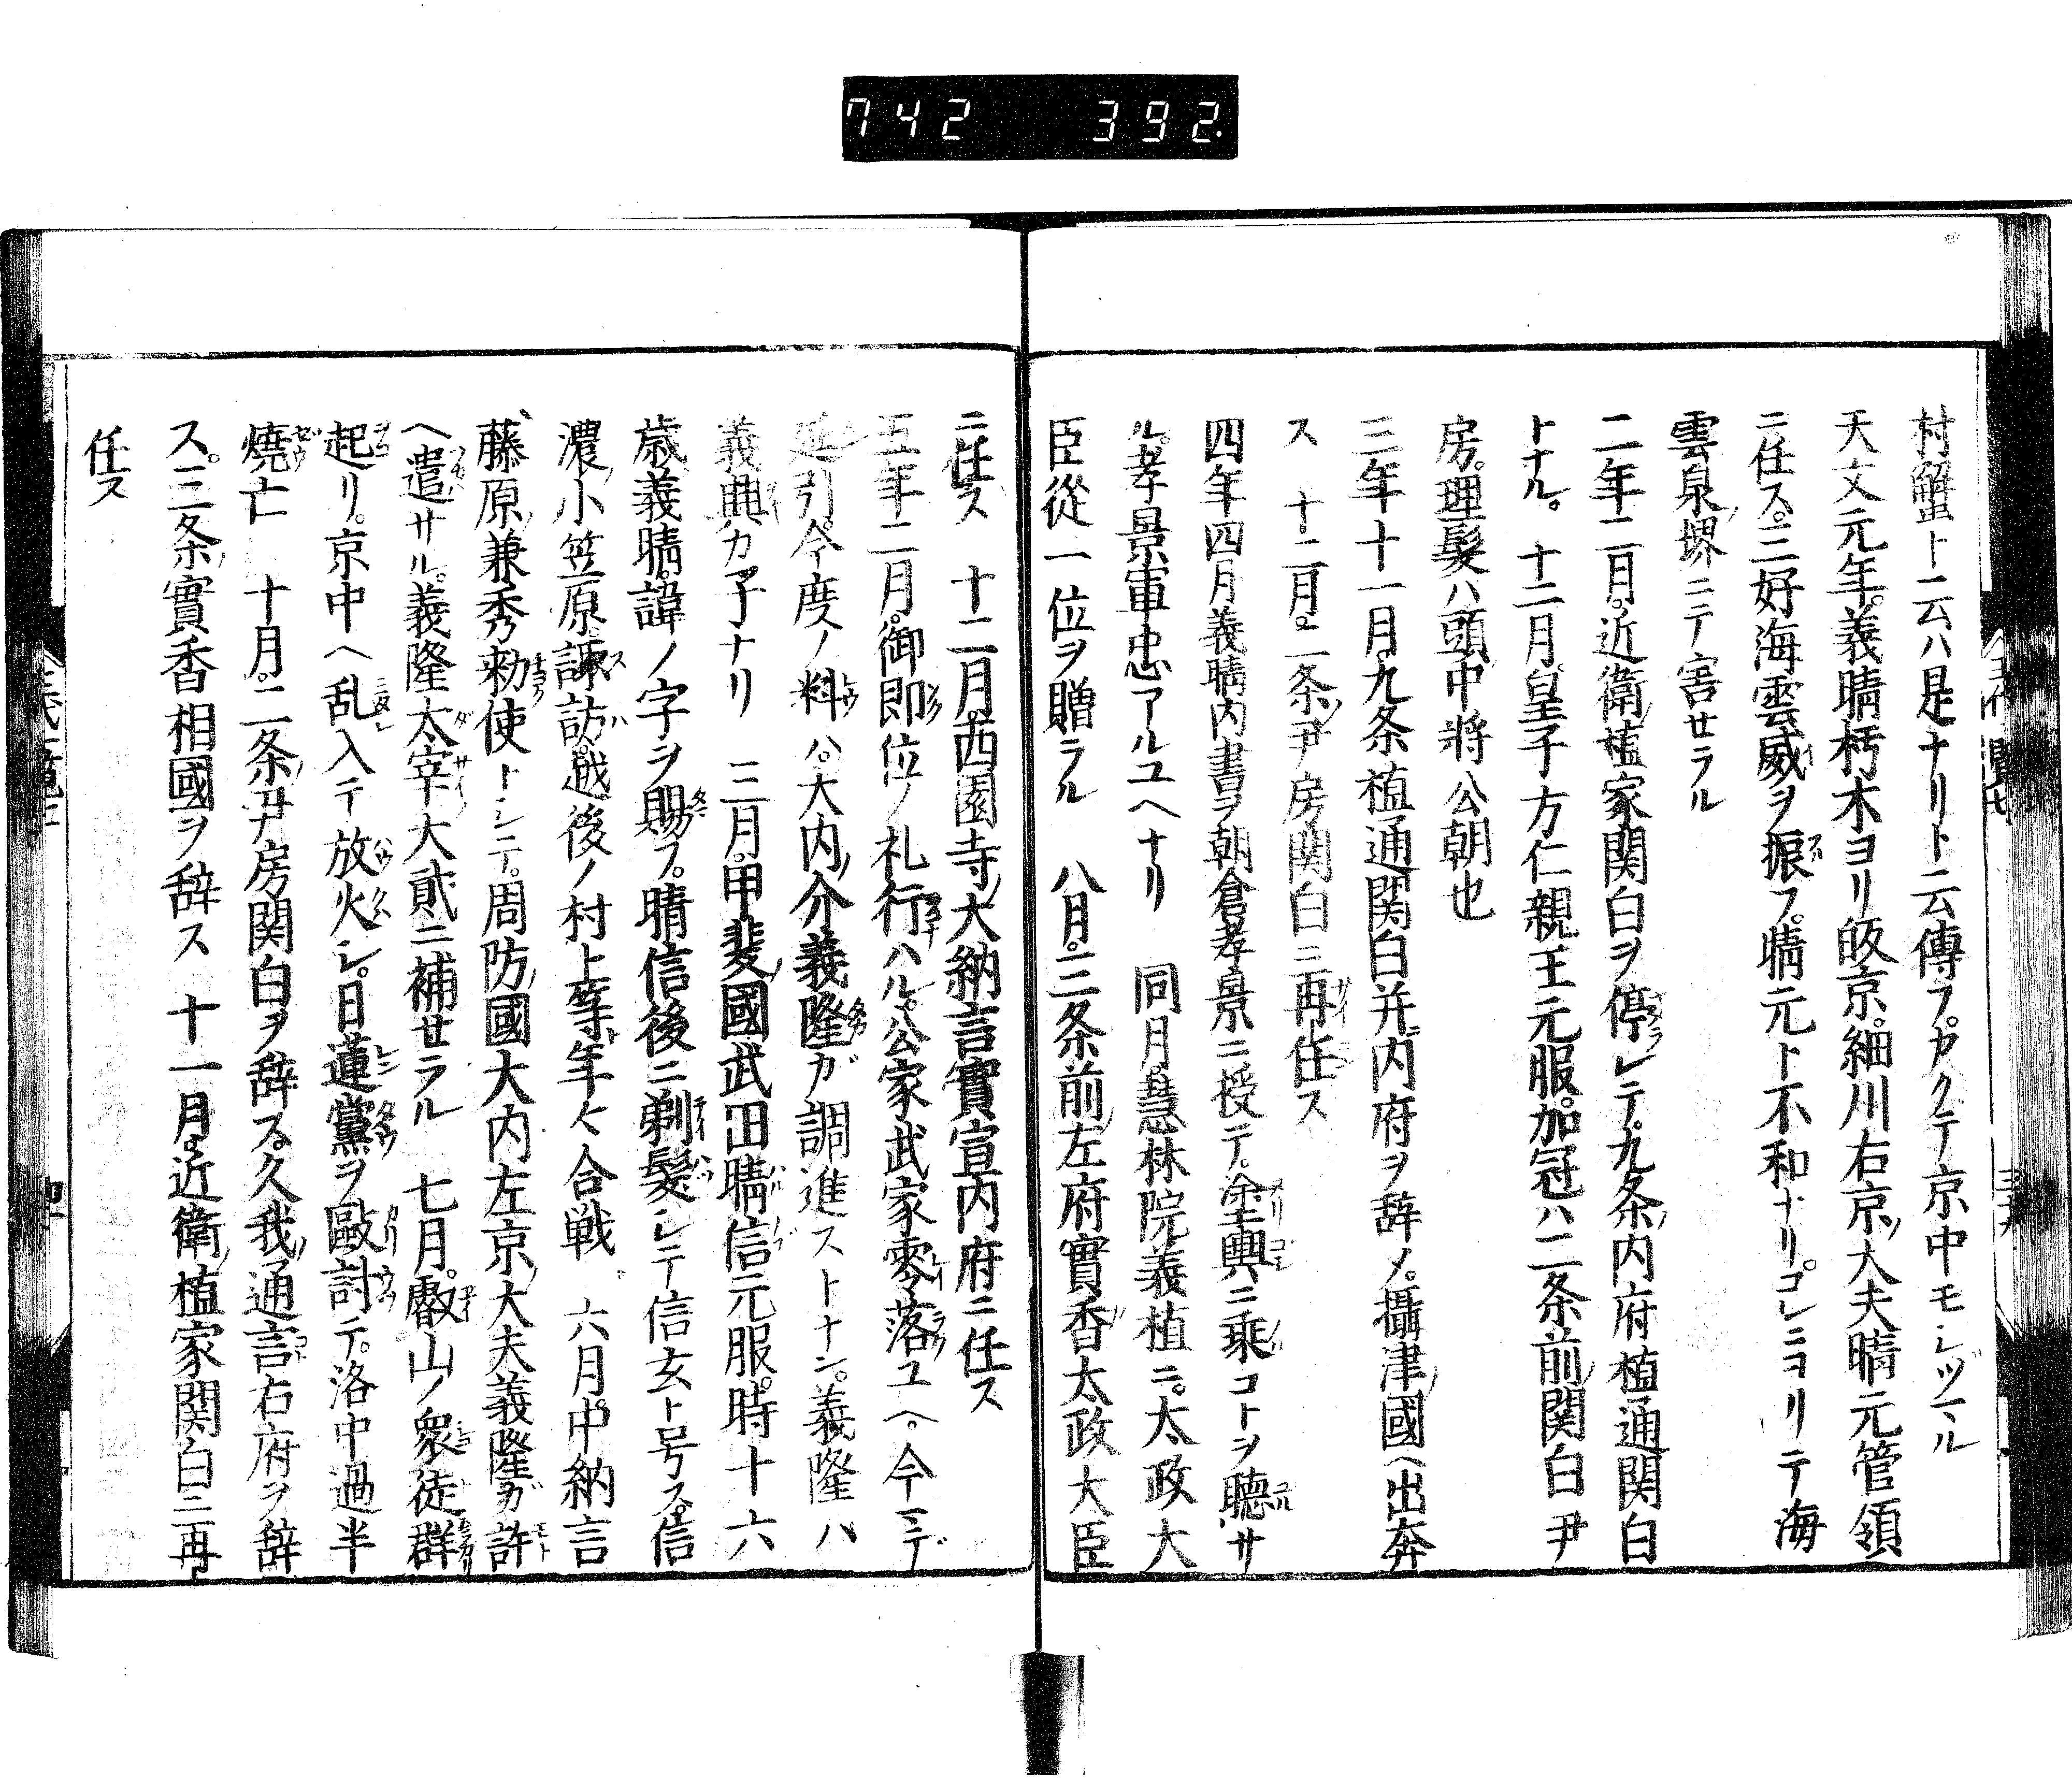 742 392.
村蟹ト云ハ是ナリト云傳フ。カクテ京中モシヅマル
天文元年。義晴朽木ヨリ皈京。細川右京ノ大夫晴元管領
ニ任ス。三好海雲威ヲ振フ。晴元ト不和ナリ。コレニヨリテ海
雲泉ノ堺ニテ害セラル
二年二月。近衛ノ植家関白ヲ停レテ。九条ノ内府植通関白
トナル。十二月。皇子方仁親王元服。加冠ハ二条前ノ関白尹
房。理髪ハ頭ノ中将公朝也
三年十一月。九条植通関白并ニ内府ヲ辞メ。攝津ノ國ヘ出奔
ス 十二月。二条ノ尹房関白ニ再任ス
四年四月義晴内書ヲ朝倉孝景ニ授テ。塗輿ニ乗コトヲ聴サ
ル。孝景軍忠アルユヘナリ 同月。慧林院義植ニ。太政大
臣從一位ヲ贈ラル 八月。三条前ノ左府實香太政大臣
ニ任ス 十二月。西園寺ノ大納言實宣内府ニ任ス
五年二月。御即位ノ礼行ハル。公家武家零落ユヘ。今ニデ
延引。今度ノ料ハ。大内ノ介義隆ガ調進ストナン。義隆ハ
義興カ子ナリ 三月。甲斐ノ國武田晴信元服。時十六
歳義晴。諱ノ字ヲ賜フ。晴信後ニ剃髪シテ信玄ト号ス。信
濃ノ小笠原。諏訪。越後ノ村上等。年々合戦 六月。中納言
藤原ノ兼秀勅使トシテ。周防ノ國大内左京ノ大夫義隆ガ許
ヘ遣サル。義隆太宰ノ大貳ニ補セラル 七月。叡山ノ衆徒群
起リ。京中ヘ乱入テ放火シ。日蓮黨ヲ毆討テ。洛中過半
焼亡 十月。二条ノ尹房関白ヲ辞ス。久我ノ通言右府ヲ辞
ス。三条ノ實香相國ヲ辞ス 十一月。近衛ノ植家関白ニ再
任ス